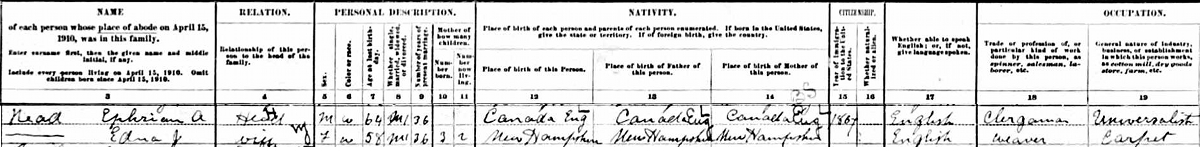 NAME RELATION. PERSONAL DESCRIPTION. NATIVITY. CITIZENSHIP. OCCUPATION.
of each person whose place of abode on April 15, 1910, was in this family.
Enter surname first, then the given name and middle initial, if any.
Include every person living on April 15, 1910. Omit children born since April 15, 1910.
Relationship of this person to the head of the family.
Sex.
Color or race.
Age at last birthday.
Whether single, married, widowed, or divorced.
Number of years of present marriage.
Mother of how many children.
Number born.
Number now living.
Place of birth of each person and parents of each person enumerated. If born in the United States, give the state or territory. If of foreign birth, give the country.
Place of birth of this Person.
Place of birth of Father of this person.
Place of birth of Mother of this person.
Year of immigration to the United States.
Whether naturalized or alien.
Whether able to speak English; or, if not, give language spoken.
Trade or profession of, or particular kind of work done by this person, as spinner, salesman, laborer, etc.
General nature of industry, business, or establishment in which this person works, as cotton mill, dry goods store, farm, etc.
3 4 5 6 7 8 9 10 11 12 13 14 15 16 17 18 19
Head Ephriam A Head M W 64 M1 36 Canada Eng Canada Eng Canada Eng 1867 English Clergyman Universalist
Edna J wife F W 58 M1 36 3 2 New Hampshire New Hampshire New Hampshire English weaver Carpet